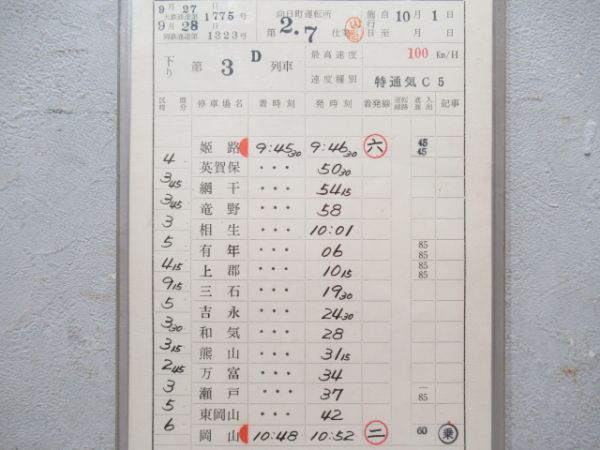 9月27日 大鉄達達第1775号
9月28日 岡鉄達達第1323号
向日町運転所
2.7 仕業
施行 自 10月 1日
至 月 日
下り 第 3 D 列車
最高速度 100 Km/H
速度種別 特通気C5
区時 間分 停車場名 着時刻 発時刻 着発線 運転線路 進入 進出 記事
姫路 9:45 30 9:46 30 六 45 45
4 英賀保 ・・・ 50 30
3 45 網干 ・・・ 54 15
3 45 竜野 ・・・ 58
3 相生 ・・・ 10:01
5 有年 ・・・ 06 85
4 15 上郡 ・・・ 10 15 85 85
9 15 三石 ・・・ 19 30
5 吉永 ・・・ 24 30
3 30 和気 ・・・ 28
3 15 熊山 ・・・ 31 15
2 45 万富 ・・・ 34
3 瀬戸 ・・・ 37 — 85
5 東岡山 ・・・ 42
6 岡山 10:48 10:52 二 60 乗